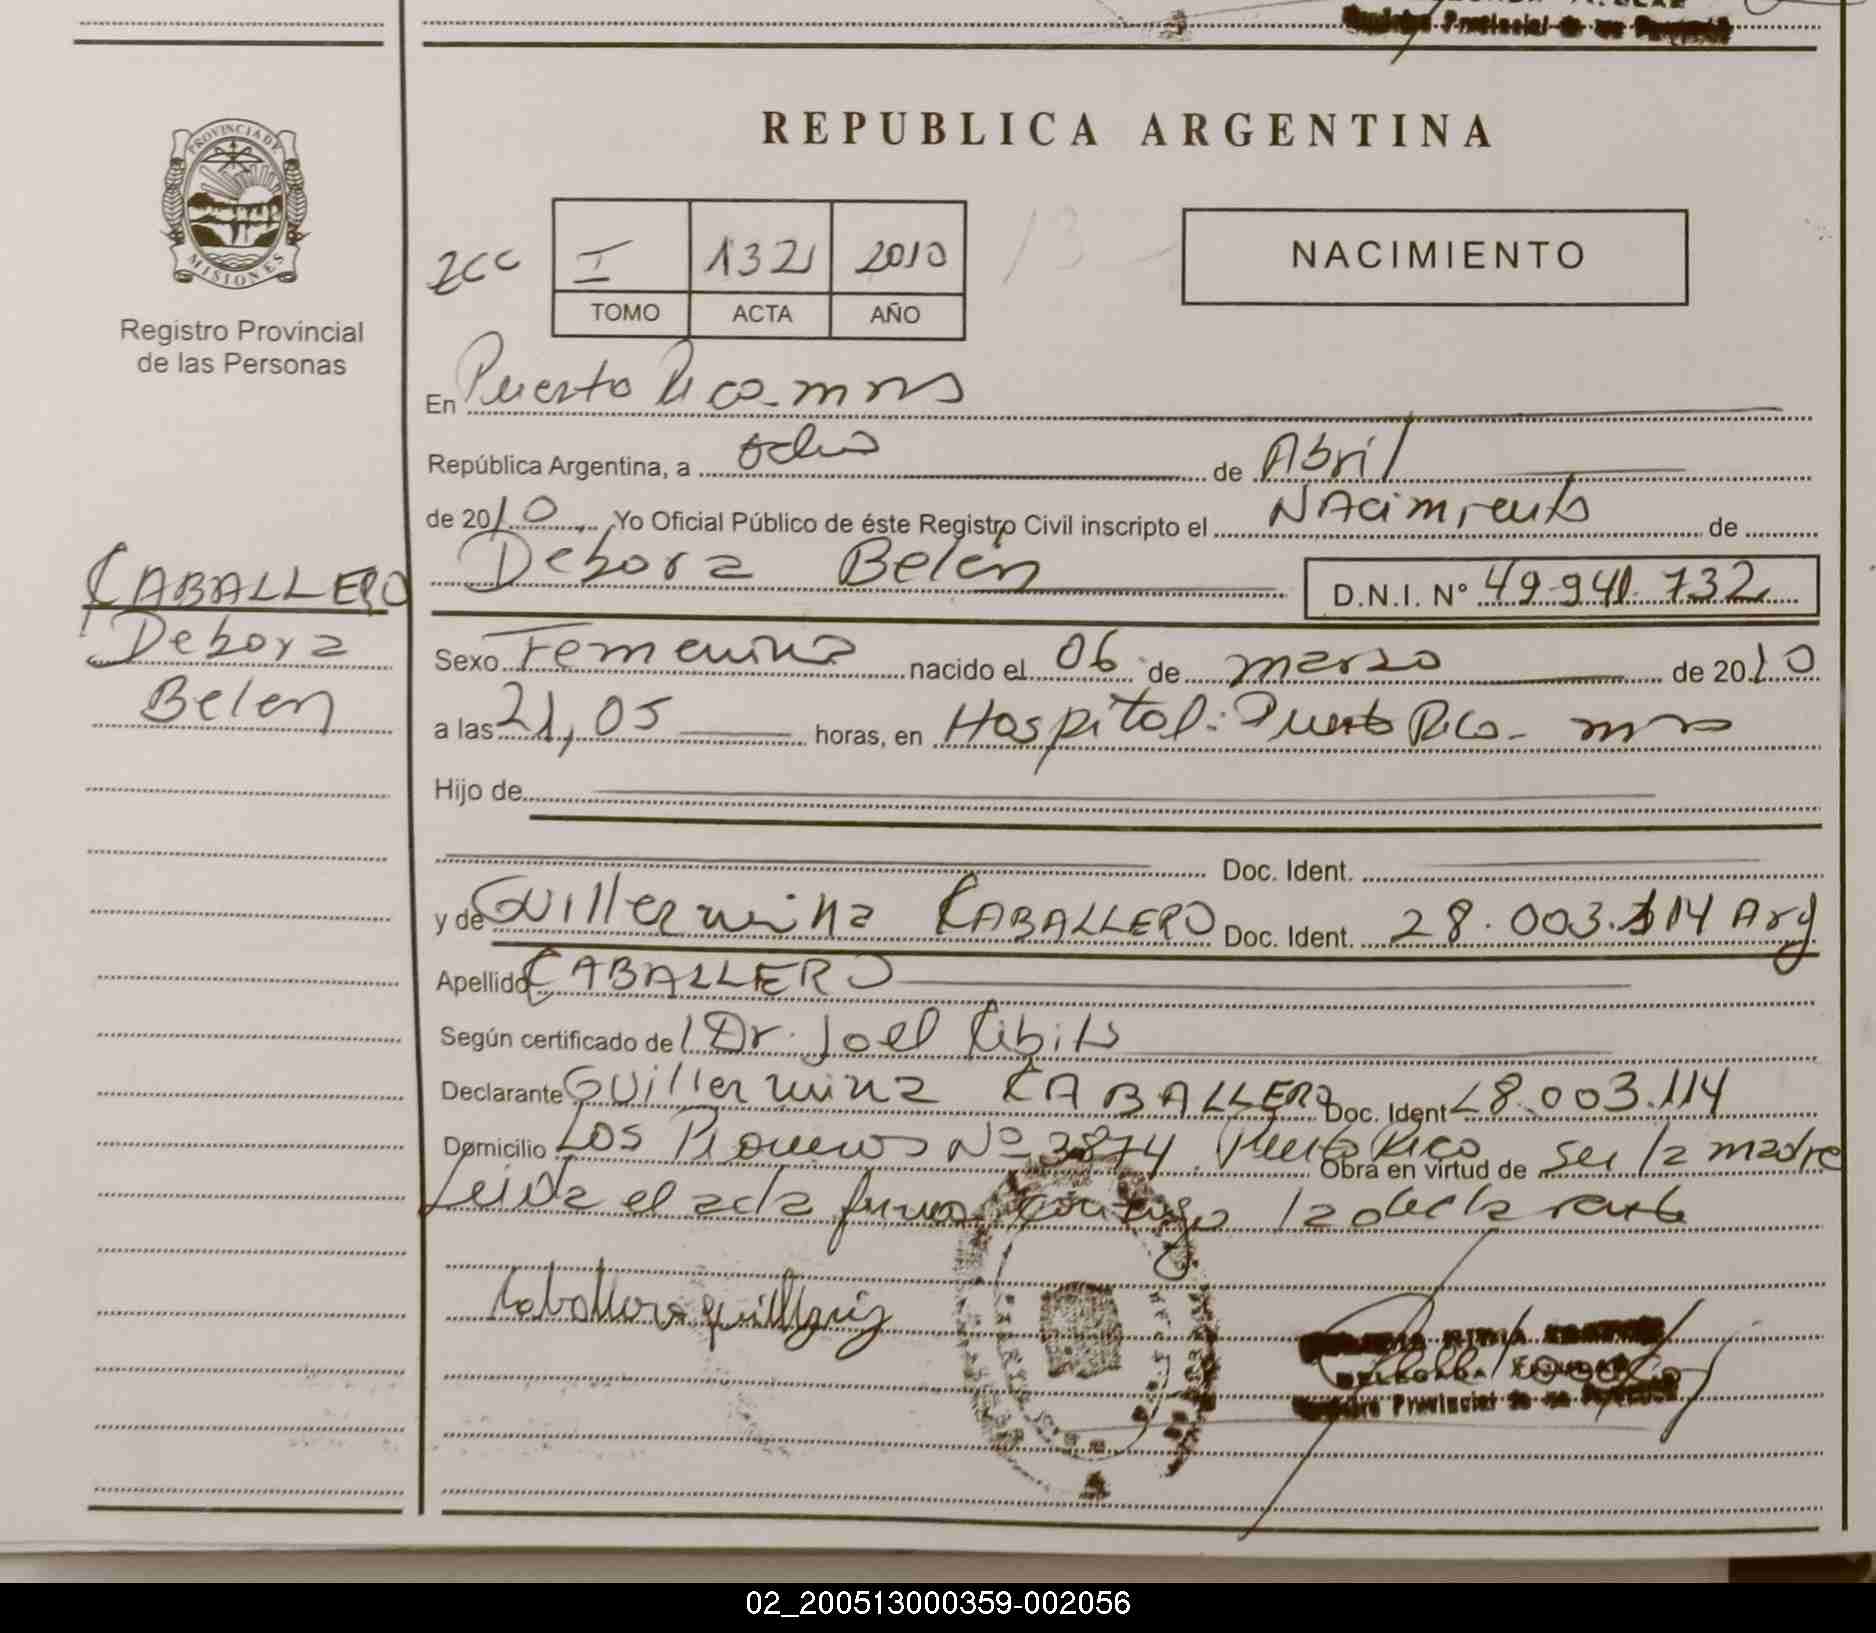 Provincial de
REPUBLICA ARGENTINA
PROVINCIA DE
MISIONES
Registro Provincial
de las Personas
NACIMIENTO
I 132 2010
TOMO ACTA AÑO
En Puerto Rico - mns
República Argentina, a ocho de Abril
de 2010, Yo Oficial Público de éste Registro Civil inscripto el NAcimiento de
Debora Belén D.N.I. Nº 49.941.732
CABALLERO
Debora
Belen
Sexo Femenino nacido el 06 de marzo de 2010
a las 21,05 horas, en Hospital: Puerto Rico - mns
Hijo de
Doc. Ident.
y de Guillermina CABALLERO Doc. Ident. 28.003.114 Arg
Apellido CABALLERO
Según certificado de Dr. Joel
Declarante Guillermina CABALLERO Doc. Ident 28.003.114
Domicilio Los Pioneros Nº 3874. Puerto Rico Obra en virtud de ser la madre
Leida el acta firma conmigo la declarante
Provincial de
02_200513000359-002056